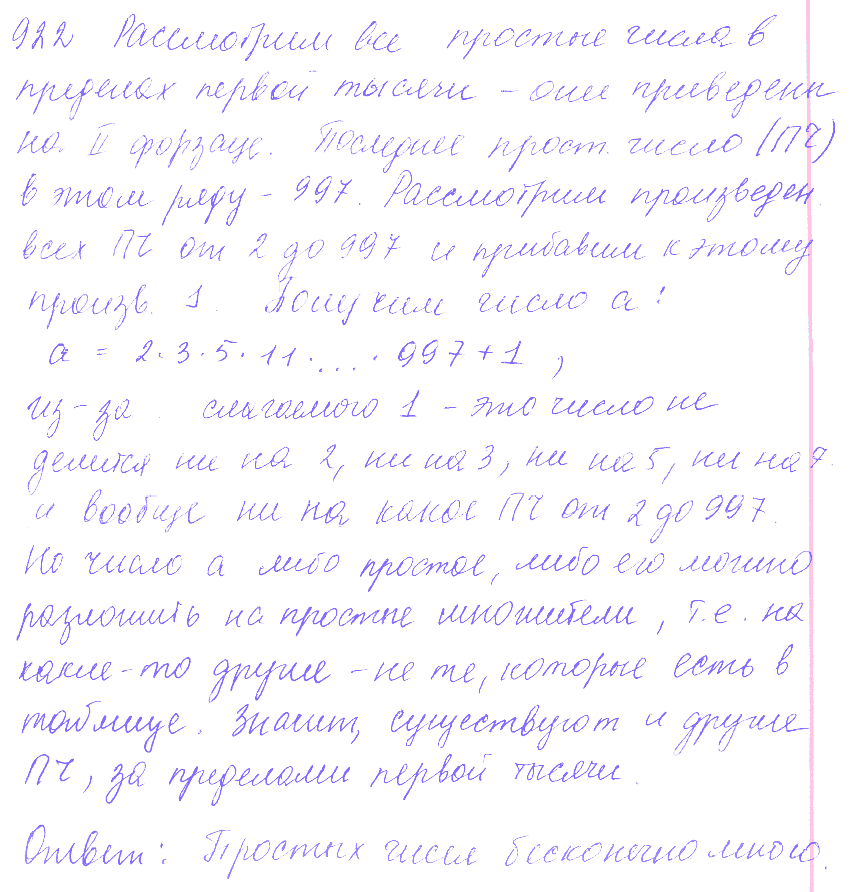 922 Рассмотрим все простые числа в
пределах первой тысячи – они приведены
на II форзаце. Последнее прост. число (ПЧ)
в этом ряду – 997. Рассмотрим произведен.
всех ПЧ от 2 до 997 и прибавим к этому
произв. 1. Получим число а:
а = 2·3·5·11·...·997+1,
из-за слагаемого 1 – это число не
делится ни на 2, ни на 3, ни на 5, ни на 7.
и вообще ни на какое ПЧ от 2 до 997.
Но число а либо простое, либо его можно
разложить на простые множители, т.е. на
какие-то другие – не те, которые есть в
таблице. Значит, существуют и другие
ПЧ, за пределами первой тысячи.
Ответ: Простых чисел бесконечно много.